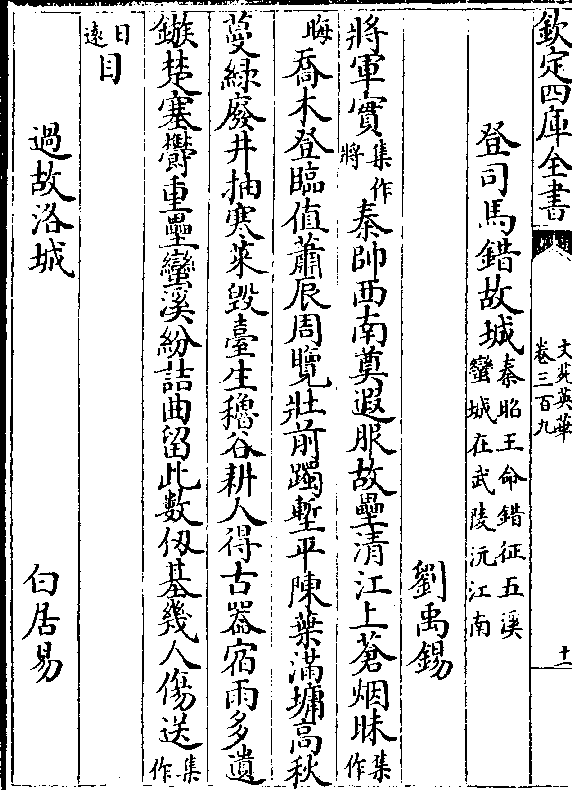 欽定四庫全書
文苑英華
卷三百九
十一
登司馬錯故城秦昭王命錯征五溪
蠻城在武陵沅江南
劉禹錫
將軍實集作
將秦帥西南奠遐服故壘清江上蒼烟昧集作
晦喬木登臨值蕭辰周覽壯前躅塹平陳葉滿墉高秋
蔓緑廢井抽寒菜毁臺生穭谷耕人得古器宿雨多遺
鏃楚塞鬱重壘蠻溪紛詰曲留此數仭基幾人傷送集作
遠日目
過故洛城
白居易